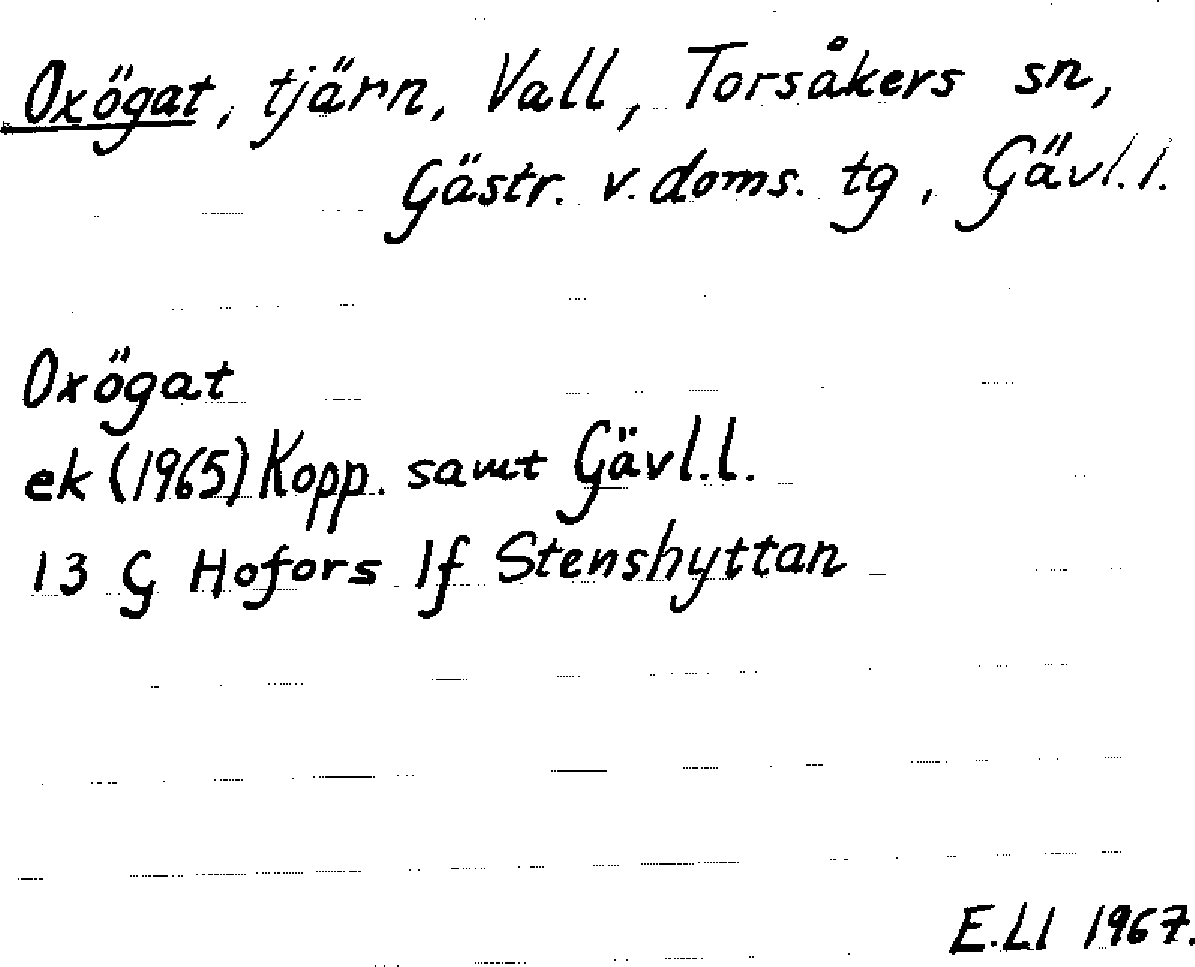 Oxögat, tjärn, Vall, Torsåkers sn,
Gästr. v. doms. tg, Gävl. l.
Oxögat
ek (1965) Kopp. samt Gävl. l.
13 G Hofors 1f Stenshyttan
E.Ll 1967.